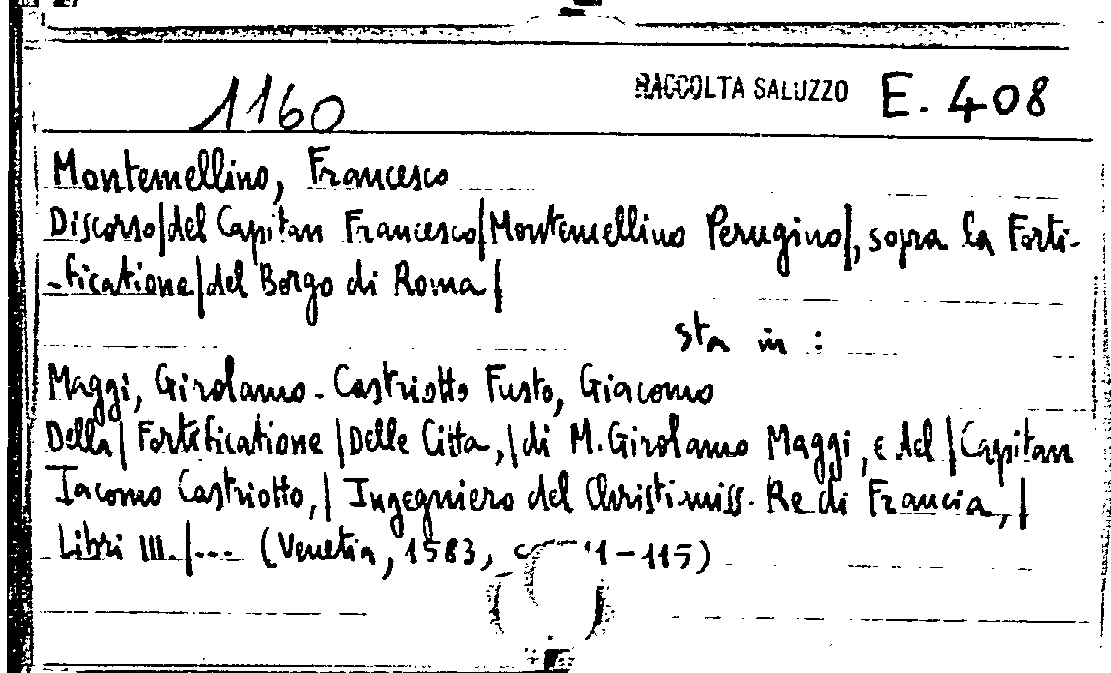 1160 RACCOLTA SALUZZO E. 408
Montemellino, Francesco
Discorso|del Capitan Francesco|Montemellino Perugino|, sopra la Forti-
-ficatione|del Borgo di Roma|
sta in :
Maggi, Girolamo - Castriotto Fusto, Giacomo
Della| Fortificatione |Delle Citta,|di M. Girolamo Maggi, e del |Capitan
Iacomo Castriotto,| Ingegniero del Christi.miss. Re di Francia,|
Libri III.|... (Venetia, 1583, 1-115)